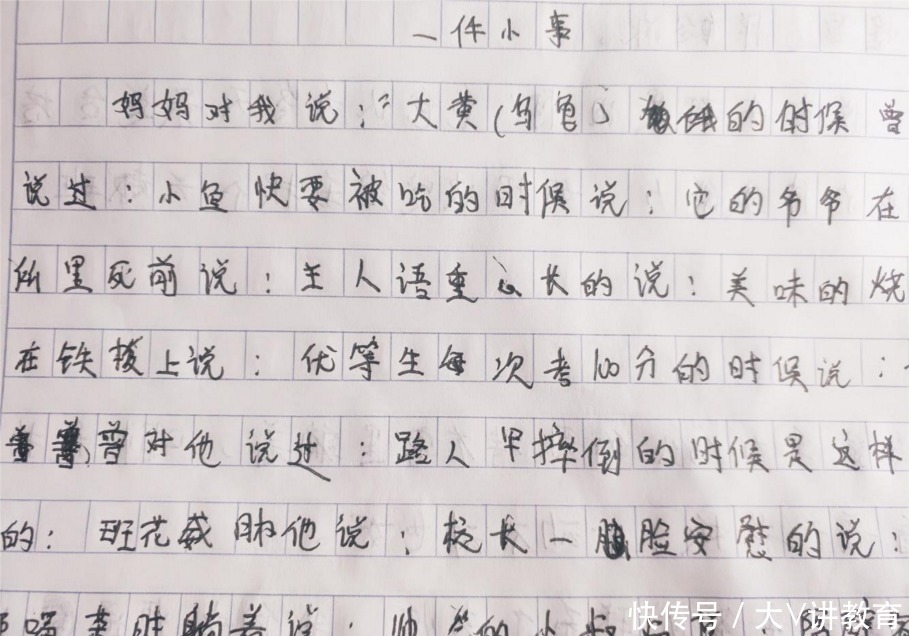 一件小事
妈妈对我说:“大黄(乌龟)饿的时候曾
说过:小鱼快要被吃的时候说:它的爷爷在
所里死前说:主人语重心长的说:美味的烧
在铁板上说:优等生每次考100分的时候说:
曾对他说过:路人甲摔倒的时候是这样
的:班花威胁他说:校长一脸安慰的说:
着说:
快传号/大V讲教育